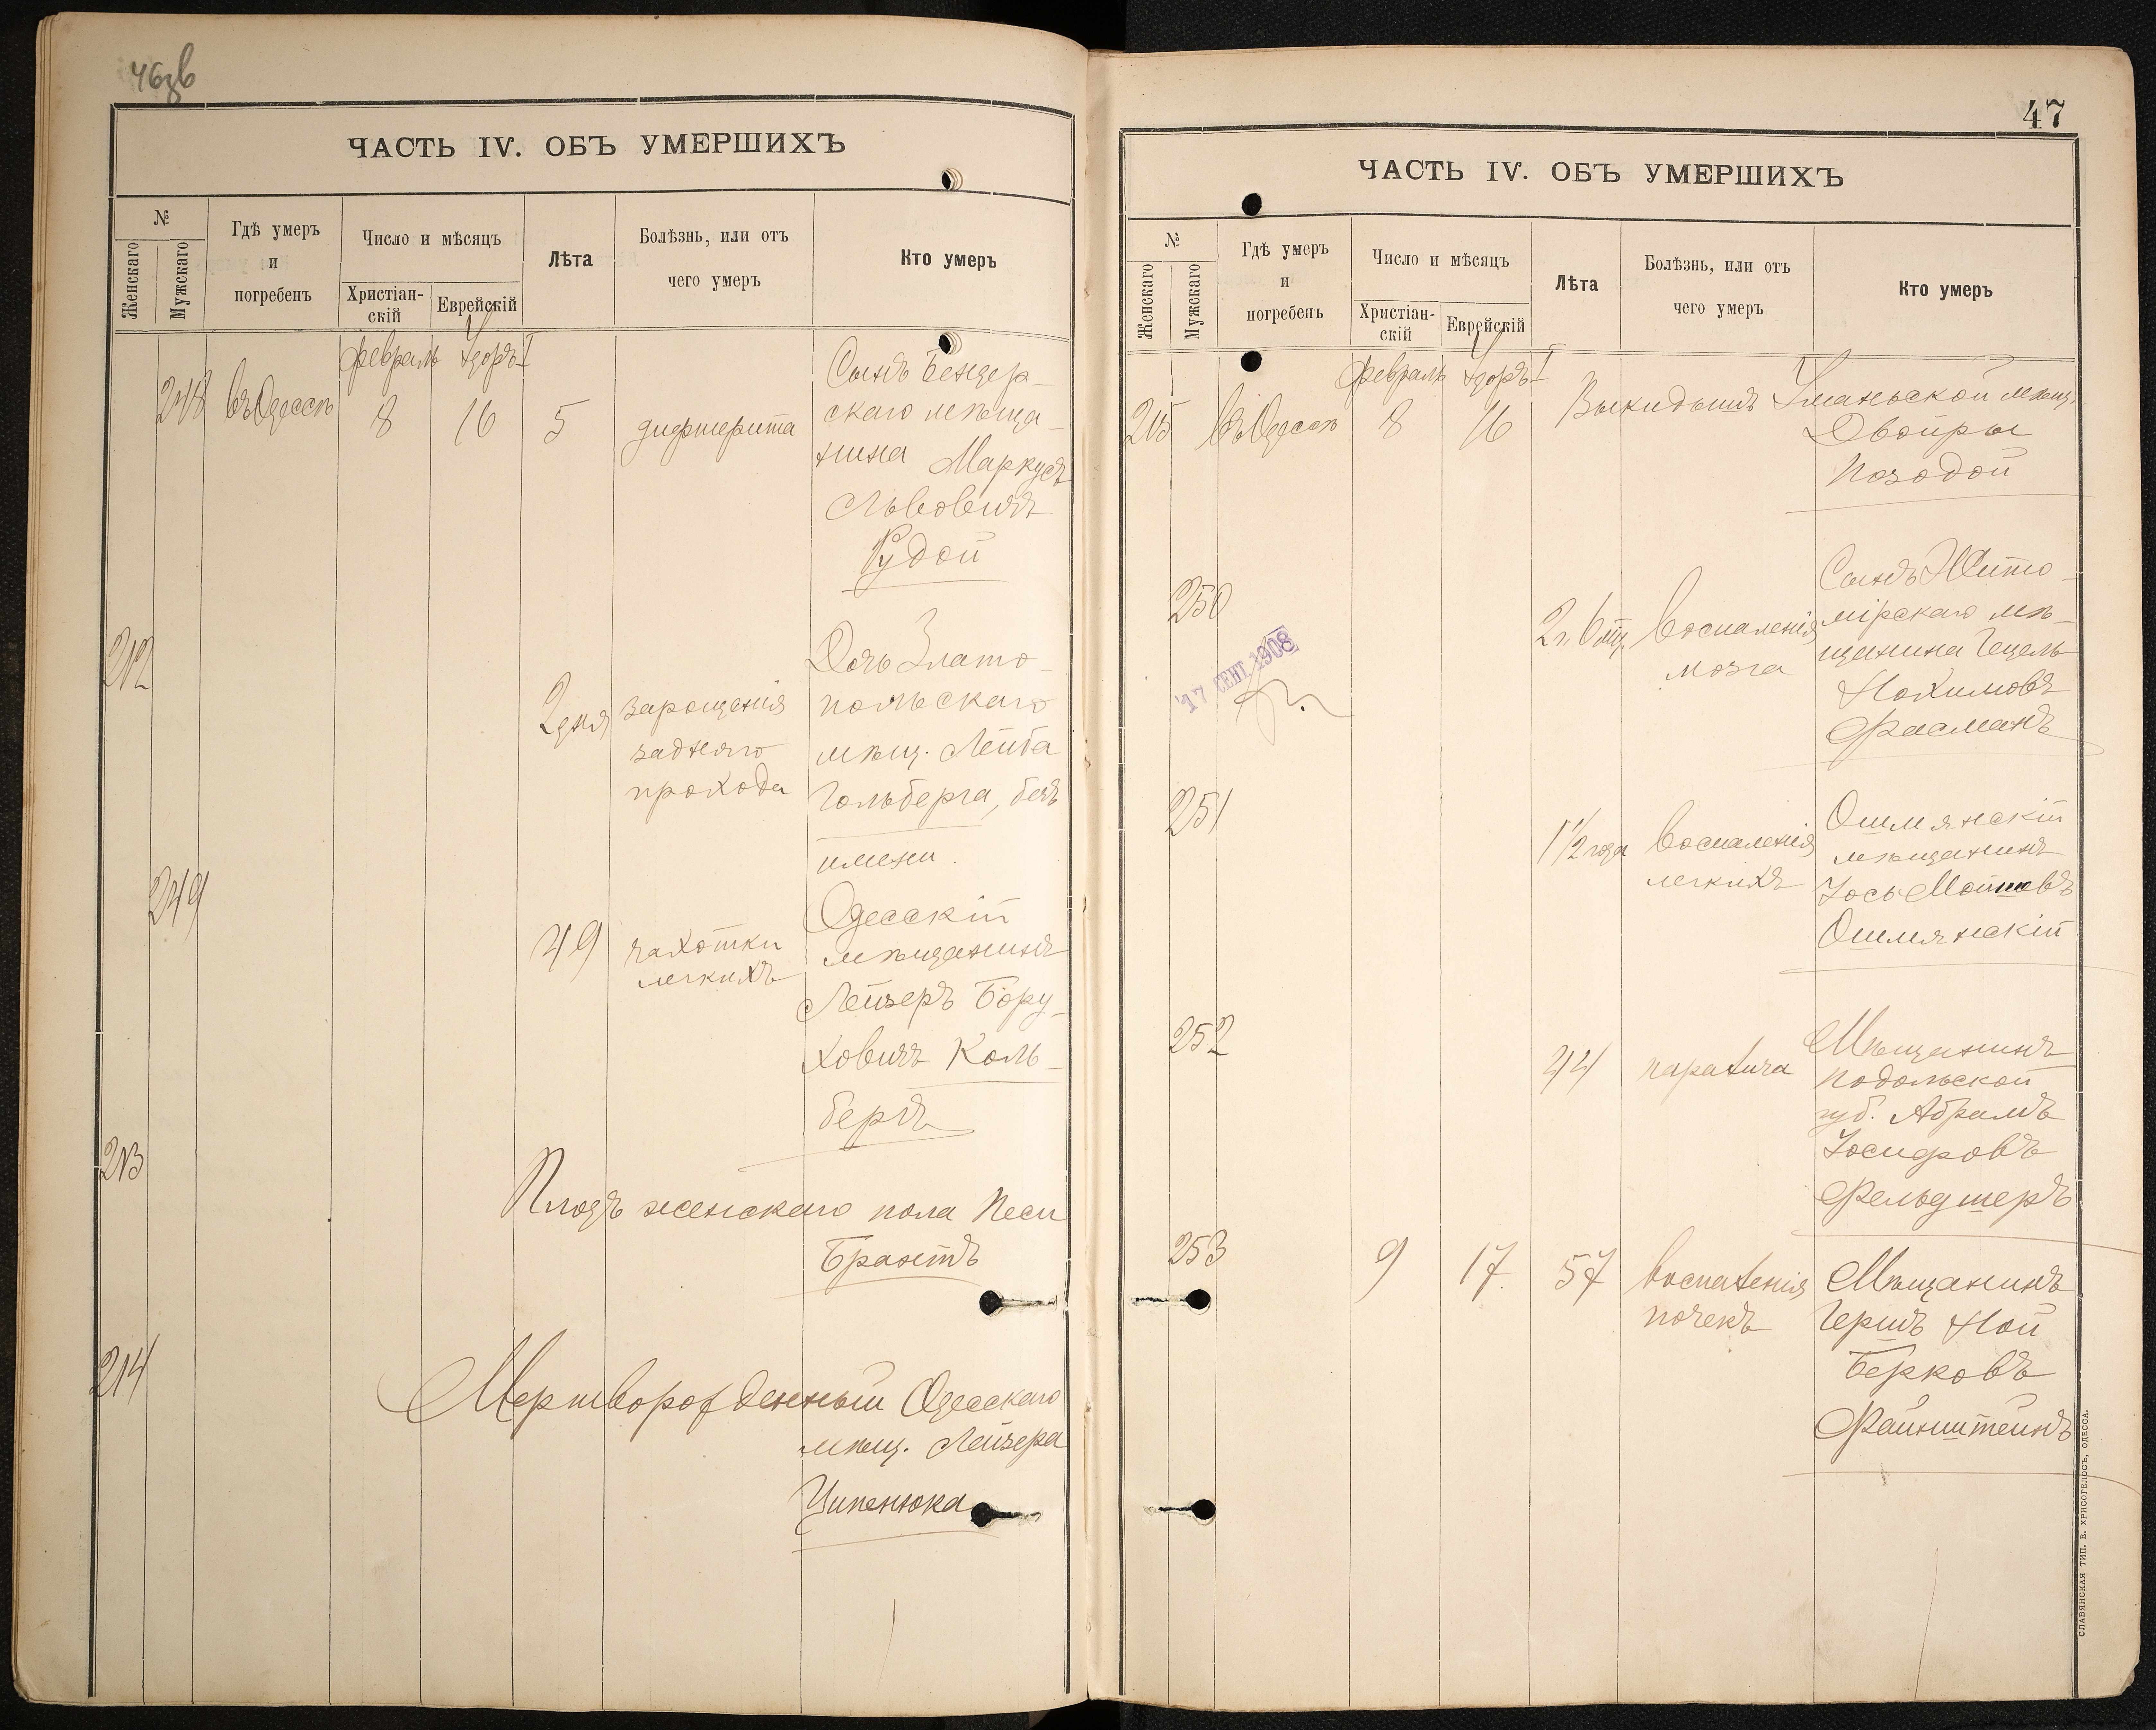 46зв
ЧАСТЬ IV. ОБЪ УМЕРШИХЪ
№
Женскаго
Мужскаго
Гдѣ умеръ
и
погребенъ
Число и мѣсяцъ
Христіан-
скій
Еврейскій
Лѣта
Болѣзнь, или отъ
чего умеръ
Кто умеръ
Февраль Адоръ I
248 въ Одессѣ 8 16 5 дифтерита
Сынъ Бендер-
скаго мѣща-
нина Маркусъ
Львовичъ
Рудой
212 2 дня
заращенія
задняго
прохода
Дочь Злато-
польскаго
мѣщ. Лейба
Гольберга, безъ
имени.
249 49
чахотки
легкихъ
Одесскій
мѣщанинъ
Лейзеръ Бору-
ховичъ Коль-
бергъ
213
Плодъ женскаго пола Песи
Брантъ
214
Мертворожденный Одесскаго
мѣщ. Лейзера
Ципенюка
47
ЧАСТЬ IV. ОБЪ УМЕРШИХЪ
№
Женскаго
Мужскаго
Гдѣ умеръ
и
погребенъ
Число и мѣсяцъ
Христіан-
скій
Еврейскій
Лѣта
Болѣзнь, или отъ
чего умеръ
Кто умеръ
Февраль Адоръ I
215 въ Одессѣ 8 16 Выкидышъ Уманьской мѣщ.
Двойры
Позодой
250 2 г. 6 мц.
воспаленія
мозга
Сынъ Жито-
мірскаго мѣ-
щанина Гецель
Нохимовъ
Фасманъ
17 СЕНТ 1908
251 1 1/2 года
воспаленія
легкихъ
Ошмянскій
мѣщанинъ
Іось
Ошмянскій
252 44 паралича
Мѣщанинъ
Подольской
губ. Абрамъ
Іосифовъ
Фельдшеръ
253 9 17 57
воспаленія
почекъ
Мѣщанинъ
Гершъ Ной
Берковъ
Файнштейнъ
СЛАВЯНСКАЯ ТИП. Е. ХРИСОГЕЛОСЪ, ОДЕССА.